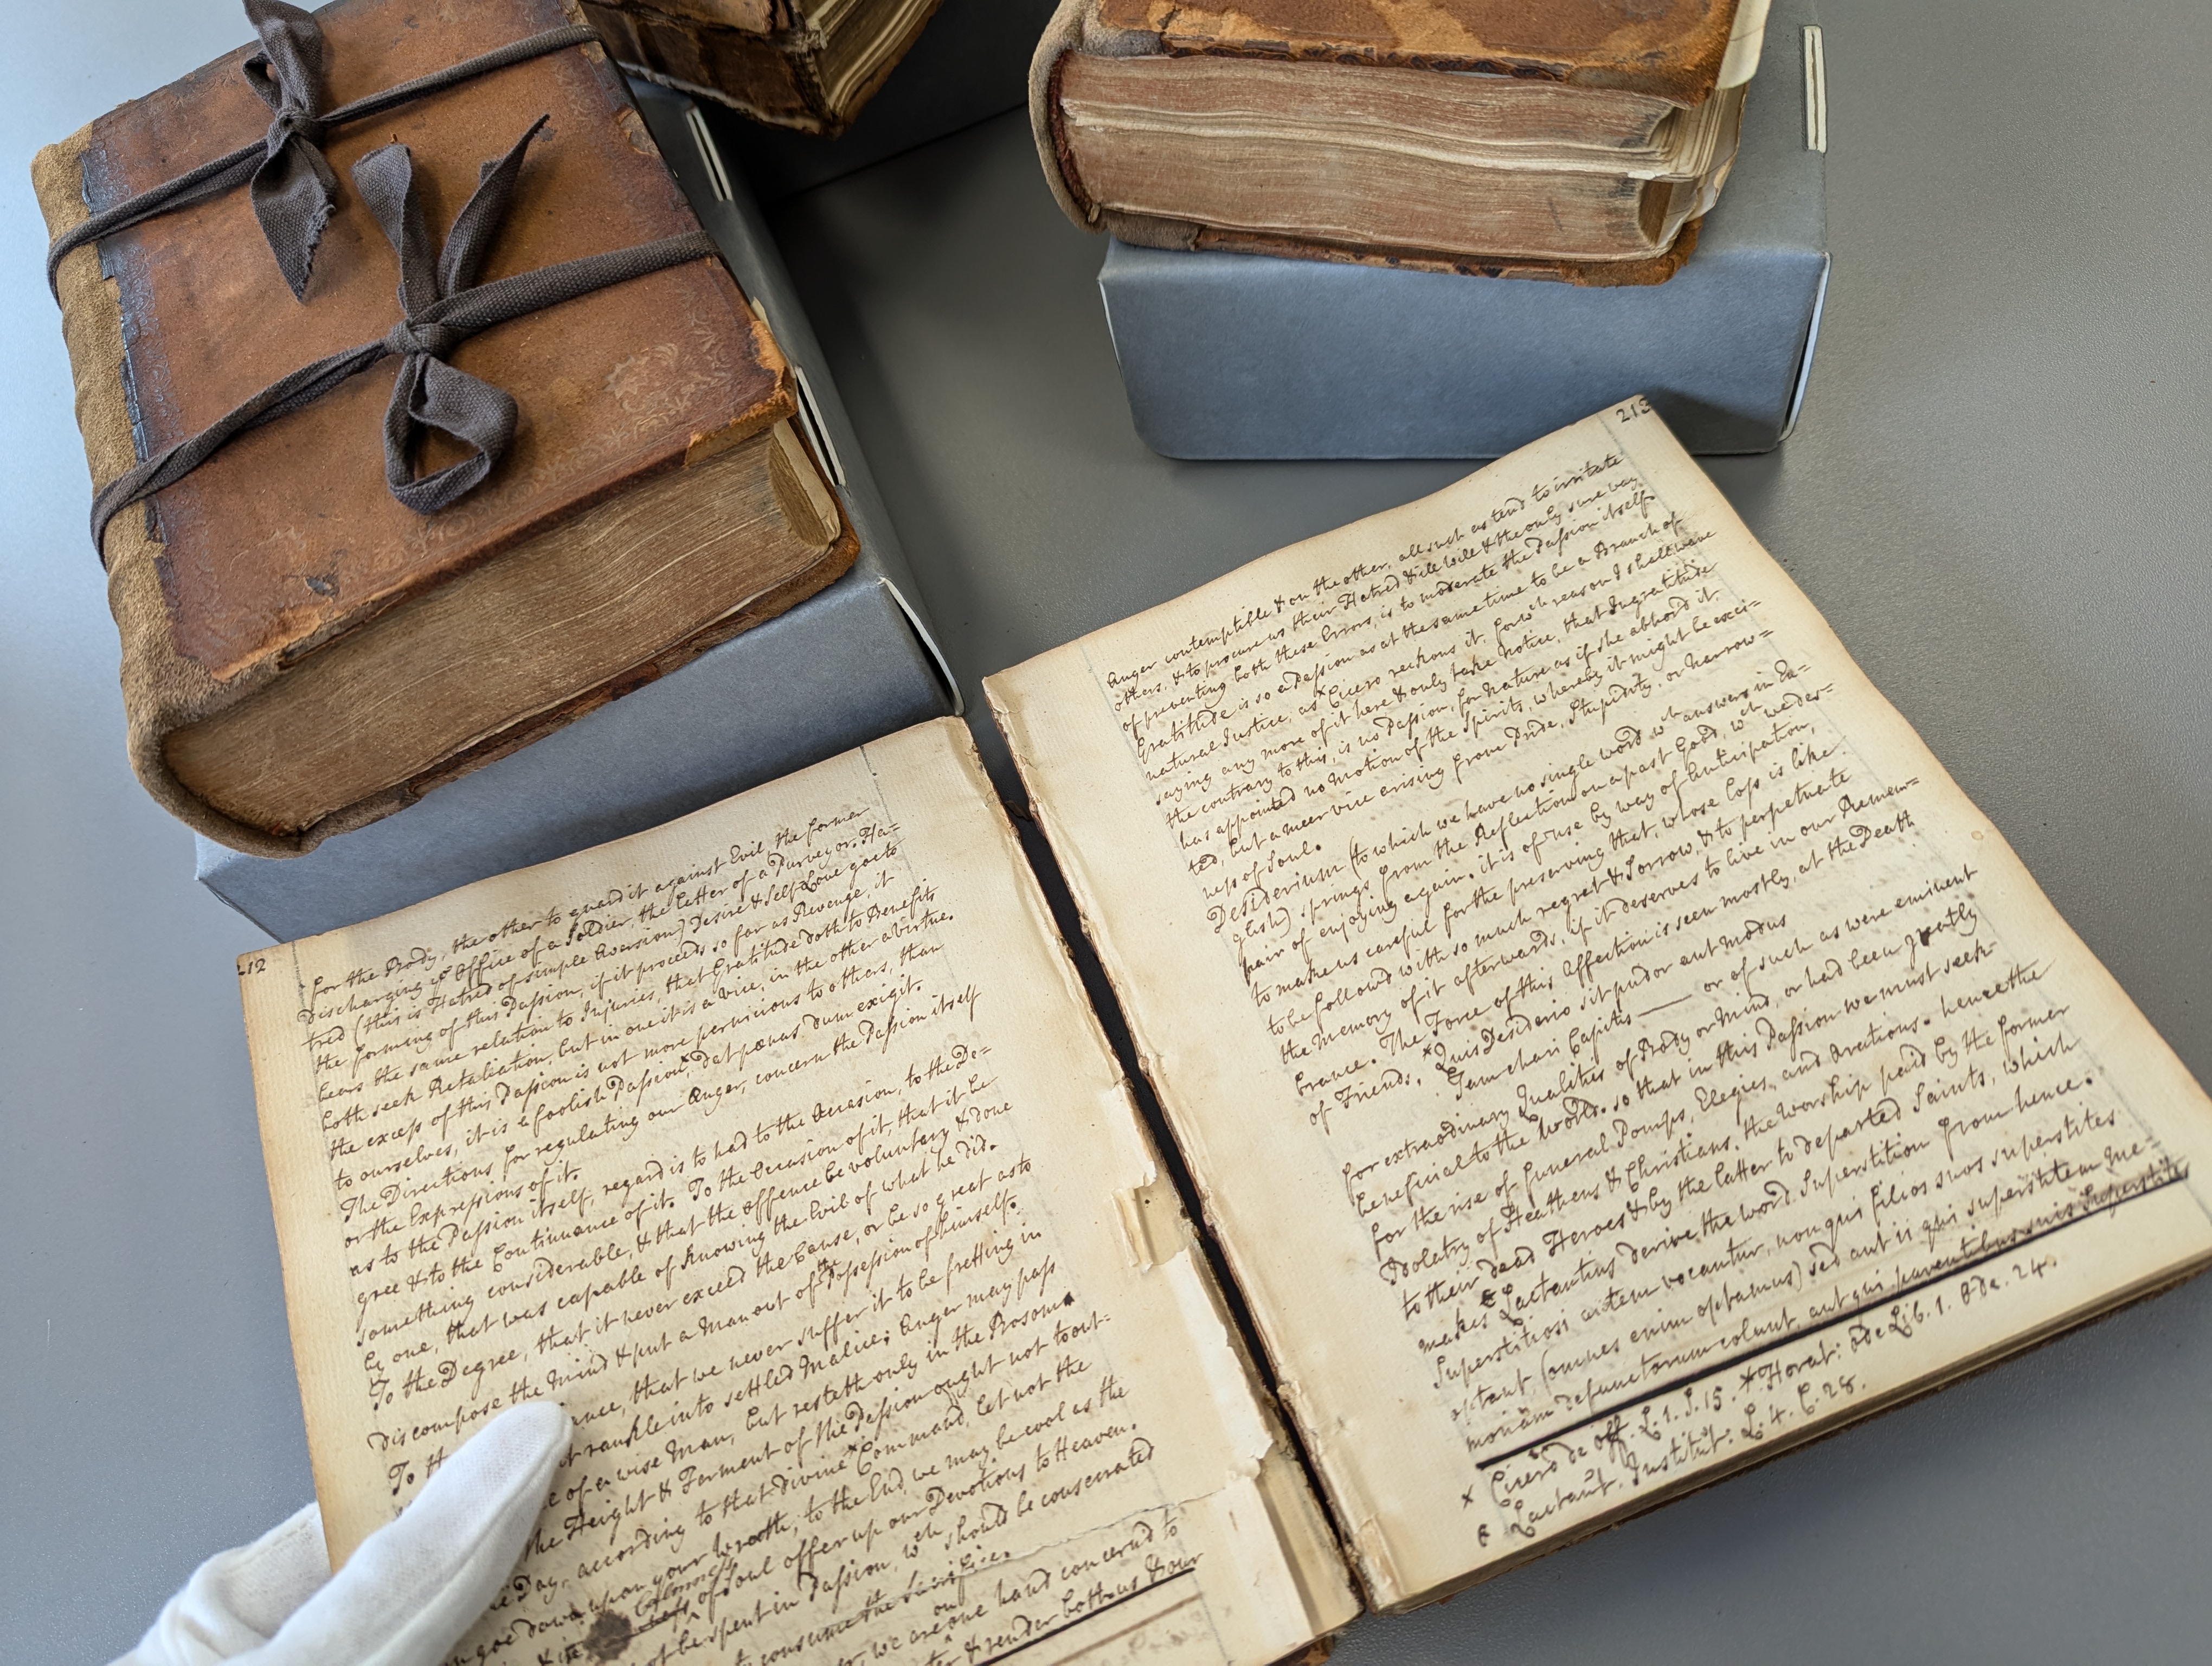 212
for the Body, the other to guard it against Evil, the former
discharging ye Office of a Soldier, the latter of a Purveyor. Ha=
tred (this is Hatred of simple Aversion) Desire & Self-Love go to
the forming of this Passion, if it proceeds so far as Revenge, it
bears the same relation to Injuries, that Gratitude doth to Benefits
both seek Retaliation, but in one it is a vice, in the other a virtue.
the excess of this Passion is not more pernicious to others, than
to ourselves, it is a foolish Passion, dat pœnas dum exigit.
The Directions for regulating our Anger, concern the Passion itself
or the Expressions of it.
as to the Passion itself, regard is to had to the Occasion, to the De=
gree & to the Continuance of it. To the Occasion of it, that it be
something considerable, & that the offence be voluntary & done
by one, that was capable of knowing the Evil of what he did.
To the Degree, that it never exceed the Cause, or be so great as to
discompose the Mind & put a Man out of the Possession of himself.
To th ance, that we never suffer it to be fretting in
t rankle into settled Malice; Anger may pass
e of a wise Man, but resteth only in the Bosom
the Height & Ferment of the Passion ought not to out=
he Day, according to that divine Command, let not the
n goe down upon your Wrath, to the End, we may be cool as the
of Soul offer up our Devotions to Heaven.
not be spent in Passion, wch should be consecrated
to consume the Sacrifice.
on
we are one hand concernd to
& render both us & our
213
Anger contemptible & on the other, all such as tend to irritate
others, & to procure us their Hatred & ill will & the only sure way
of preventing both these Errors, is to moderate the Passion itself.
Gratitude is so a Passion as at the same time to be a Branch of
natural Justice, as Cicero reckons it, for wch reason I shall wave
saying any more of it here & only take notice, that Ingratitude
the contrary to this, is no Passion, for Nature as if she abhord it
has appointed no Motion of the Spirits, whereby it might be exci=
ted, but a meer vice arising from Pride, Stupidity, or Narrow=
ness of Soul.
Desiderium (to which we have no single word wch answers in En=
glish) springs, from the Reflection on a past Good, wch we des=
pair of enjoying again. it is of use by way of Anticipation,
to make us careful for the preserving that, whose Loss is like
to be followd with so much regret & Sorrow, & to perpetuate
the Memory of it afterwards, if it deserves to live in our Remem=
brance. The Force of this Affection is seen mostly, at the Death
of Friends. Quis Desiderio sit pudor aut modus
Tam chari Capitis — or of such as were eminent
for extraordinary Qualities of Body or Mind, or had been greatly
beneficial to the World. so that in this Passion we must seek
for the rise of Funeral Pomps, Elegies, and Orations. hence the
Idolatry of Heathens & Christians. the worship paid by the former
to their dead Heroes & by the latter to departed Saints, which
makes Lactantius derive the word Superstition from hence.
Superstitiosi autem vocantur, non qui filios suos superstites
optant (omnes enim optamus) sed aut ii qui superstitem me=
moriam defunctorum colunt, aut qui parentibus suis superstites
x Cicero de off. L. 1. S. 15. * Horat: ode Lib. 1. Ode. 24.
Lactant. Institut. L. 4. C. 28.